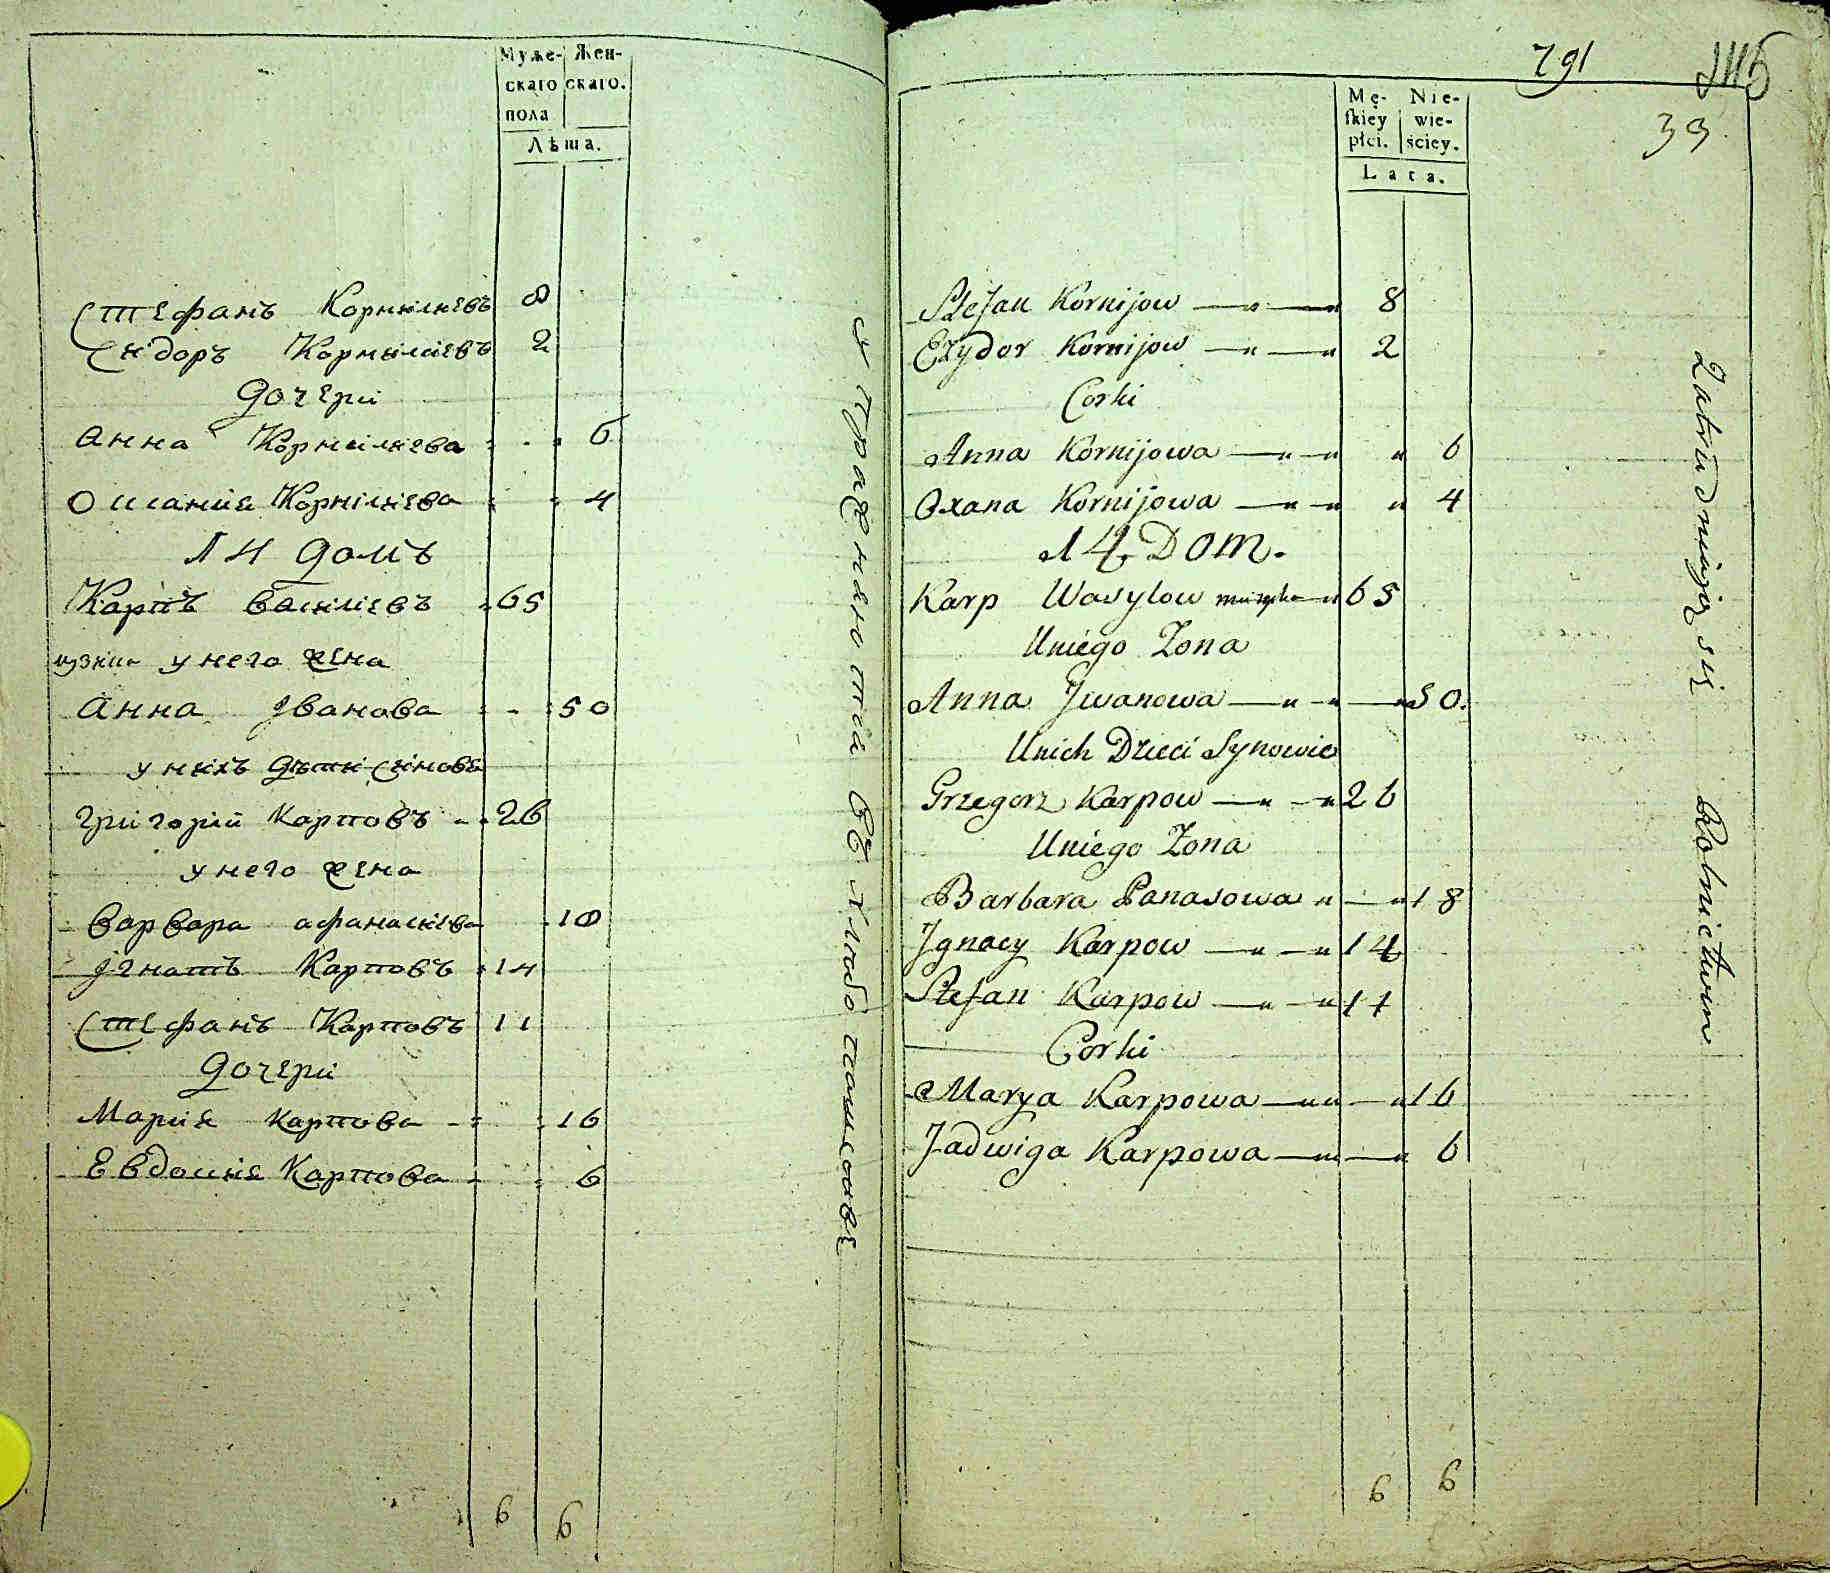 Муже- Жен-
скаго скаго.
пола
Лѣта.
Стефанъ Корнилиевъ 8
Сидоръ Корнилиевъ 2
Дочери
Анна Корнилиева 6
Оксания Корнилиева 4
14 Домъ
Карпъ Василиевъ 65
у него жена
Анна Іванова 50
у нихъ дѣти синове
Григорий Карповъ 26
у него жена
Варвара Афанасиева 18
Ігнатъ Карповъ 14
Стефанъ Карповъ 11
Дочери
Мария Карпова 16
Евдокия Карпова 6
6 6
упражняются въ хлебопашстве
791
33
Mę- Nie-
skiey wie-
płci. ściey.
Lata.
Stefan Kornijow 8
Ezydor Kornijow 2
Corki
Anna Kornijowa 6
Oxana Kornijowa 4
14 Dom.
Karp Wasylow muzyka 65
Uniego Zona
Anna Jwanowa 50.
Unich Dzieci Synowie
Grzegorz Karpow 26
Uniego Zona
Barbara Panasowa 18
Jgnacy Karpow 14
Stefan Karpow 11
Corki
Marya Karpowa 16
Jadwiga Karpowa 6
6 6
Zatrudniają się Rolnictwem